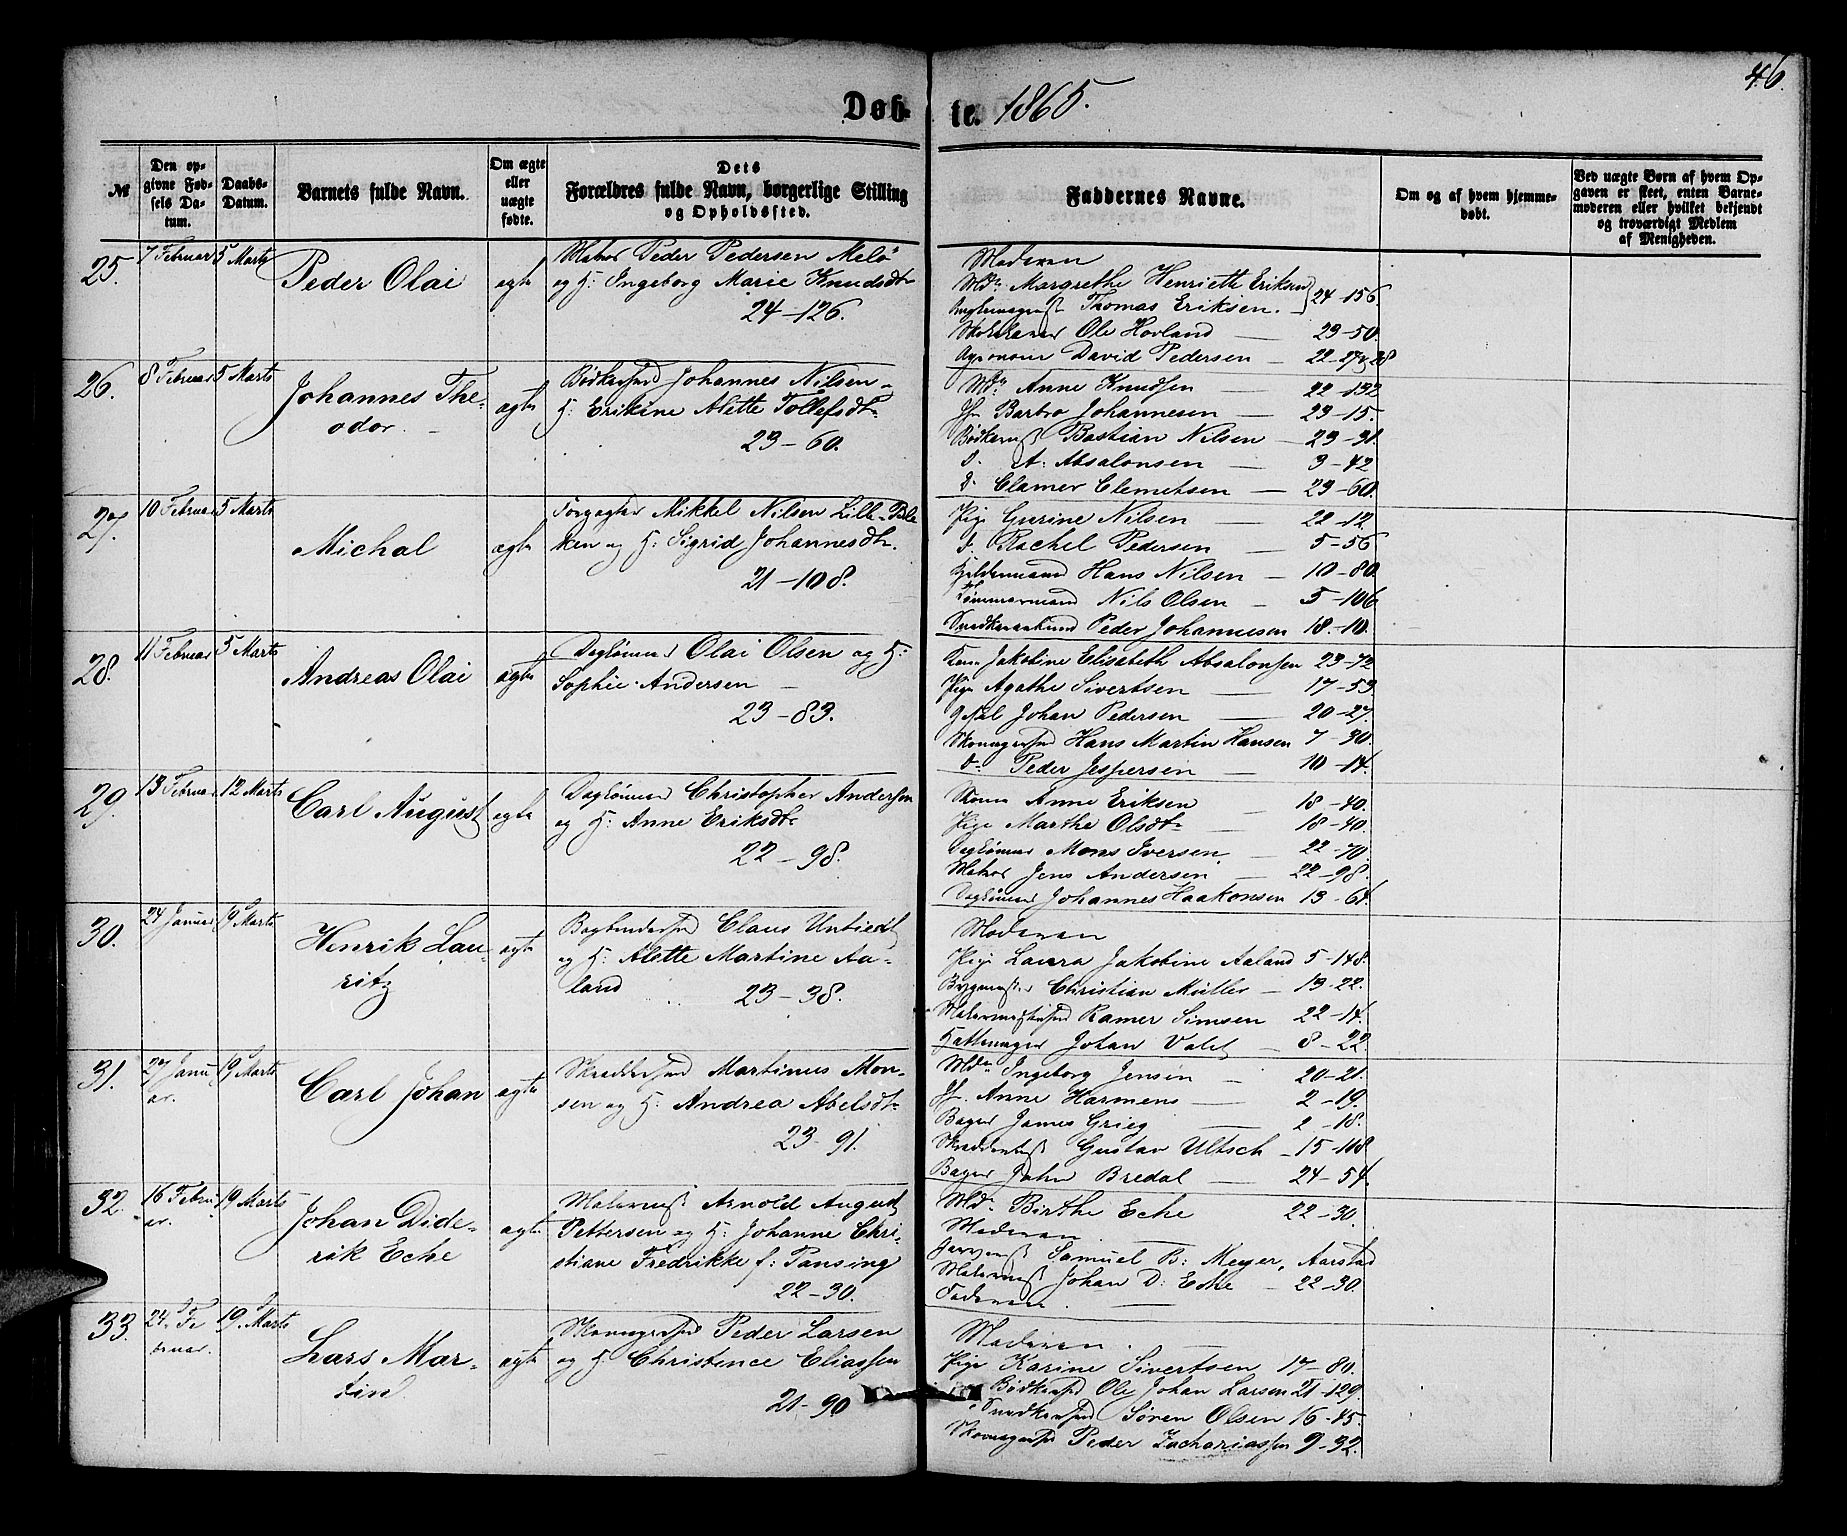 46.
Døb- te. 1865.
№
Den opgivne Fødsels Datum.
Daabs-Datum.
Barnets fulde Navn.
Om ægte eller uægte fødte.
Dets Forældres fulde Navn, borgerlige Stilling og Opholdssted.
Faddernes Navne.
Om og af hvem hjemmedøbt.
Ved uægte Børn af hvem Opgaven er skeet, enten Barnemoderen eller hvilket bekjendt og troværdigt Medlem af Menigheden.
25. 7 Februar 5 Marts Peder Olai egte
Matros Peder Pedersen Melö
og H: Ingeborg Marie Knudsdtr
24-126.
Moderen
Md. Margrethe Henriette Eriksen
Thomas Eriksen. 24-156.
Ole Hovland 23-50.
Agronom David Pedersen 22-27&28
26. 8 Februar 5 Marts Johannes The-
odor. egte
Bödkersvd Johannes Nilsen
H: Erikine Alette Tollefsdtr
23-60.
Md. Anne Knudsen 22-132
Jfr Barbro Johannesen 23-15.
Bödkermst Bastian Nilsen 23-31.
d. A. Absalonsen 3-42
d. Clamer Clemetsen 23-60.
27. 10 Februar 5 Marts Michal egte
Mikkel Nilsen Lille-Bak-
ken og H: Sigrid Johannesdtr.
21-108.
Pige Gurine Nilsen 22-12
d. Rachel Pedersen 5-56
Hans Nilsen 10-80.
Tömmermand Nils Olsen 5-106
Snedkersvend Peder Johannesen 18-10.
28. 11 Februar 5 Marts Andreas Olai egte
Daglönner Olai Olsen og H:
Sophie Andersen
23-83.
Kone Jakobine Elisabeth Absalonsen 23-72
Pige Agathe Sivertsen 17-53
Johan Pedersen 20-27.
Skomagersvd Hans Martin Hansen 7-30.
d. Peder Jespersen 10-14.
29. 13 Februar 12 Marts Carl August egte
Daglönner Christopher Andersen
og H: Anne Eriksdtr
22-98.
Kone Anne Eriksen 18-40.
Pige Marthe Olsdtr 18-40.
Daglönner Mons Iversen 22-70.
Matros Jens Andersen 22-98.
Daglönner Johannes Haakonsen 13-64.
30. 24 Januar 19 Marts Henrik Lau-
ritz egte
Bogbindersvd Claus Untiedt
og H: Alette Martine Aa-
land 23-38.
Moderen
Pige Laura Jakobine Aaland 5-148.
Christian Müller 13-22.
Ramer Simsen 22-14.
Hattemager Johan Valet 8-22
31. 27 Janu-
ar. 19 Marts Carl Johan egte
Skreddersvd Martinus Mon-
sen og H: Andrea Abelsdtr
23-91.
Md. Ingeborg Jensen 20-21.
Jfr. Anne Harmens 2-19.
Bager James Grieg 2-18.
Skreddermst Gustav Ultsch 15-108
Bager John Bredal 24-54.
32. 16 Febru-
ar. 19 Marts Johan Dide-
rik Eche egte
Malermst Arnold August
Pettersen og H: Johanne Chri-
stiane Fredrikke f: Pansing
22-30.
Md. Birthe Eche 22-30.
Moderen
Samuel B: Meyer, Aarstad
Malermst Johan D: Eche 22-30.
Faderen
33. 24. Fe
bruar. 19. Marts Lars Mar-
tin egte
Skomagersvd Peder Larsen
og H: Christence Eliassen
21-90
Moderen.
Pige Karine Sivertsen 17-80.
Bödkersvd Ole Johan Larsen 21-129.
Snedkersvend Sören Olsen 16-45.
Skomagersvd Peder Zachariassen 9-32.